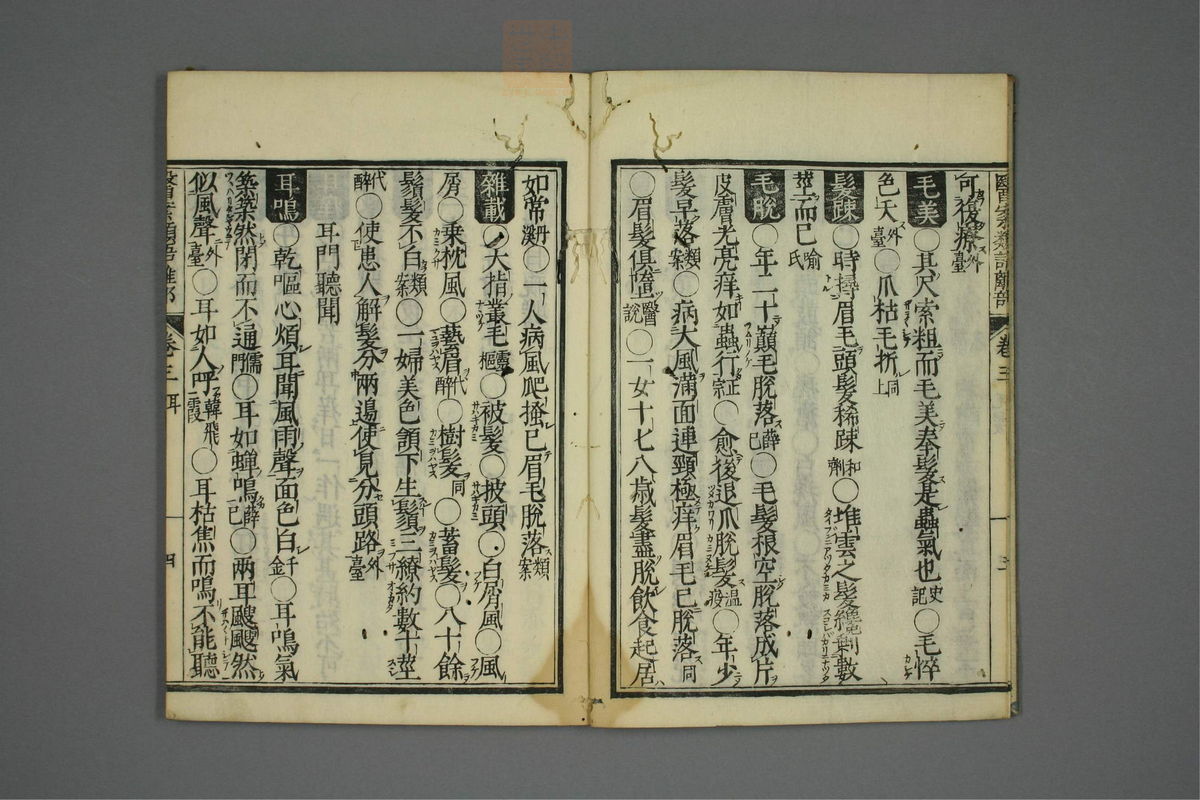 可復療外臺
毛美○其尺索粗而毛美奉髮是蟲氣也史記○毛悴
色夭外臺○爪枯毛折同上
髮疎○時撏眉毛頭髮稀踈和劑○堆雲之髮纔剩數
莖而已喻氏
毛脫○年二十巔毛脫落薛己○毛髮根空脫落成片
皮膚光亮痒如蟲行正○愈後退爪脫髮溫疫○年少
髮早落類案○病大風滿面連頸極痒眉毛已脫落同
○眉髮俱墮醫說○一女十七八歲髮盡脫飲食起居
如常丹溪○一人病風爬搔已眉毛脫落類案
雜載○大指叢毛靈樞○被髮○披頭○白屑風○風
屑○乘枕風○藝眉代醉○樹髮同○蓄髮○八十餘
鬚髮不白類案○一婦美色頷下生鬚三繚約數十莖
代醉○使患人解髮分兩邊使見分頭路外臺
耳門聽聞
耳鳴○乾嘔心煩耳聞風雨聲面色白千金○耳鳴氣
築築然閉而不通儒門○耳如蟬鳴薛己○兩耳颼颼然
似風聲外臺○耳如人呼韓飛霞○耳枯焦而鳴不能聽
卷三 耳
四
卷三
三